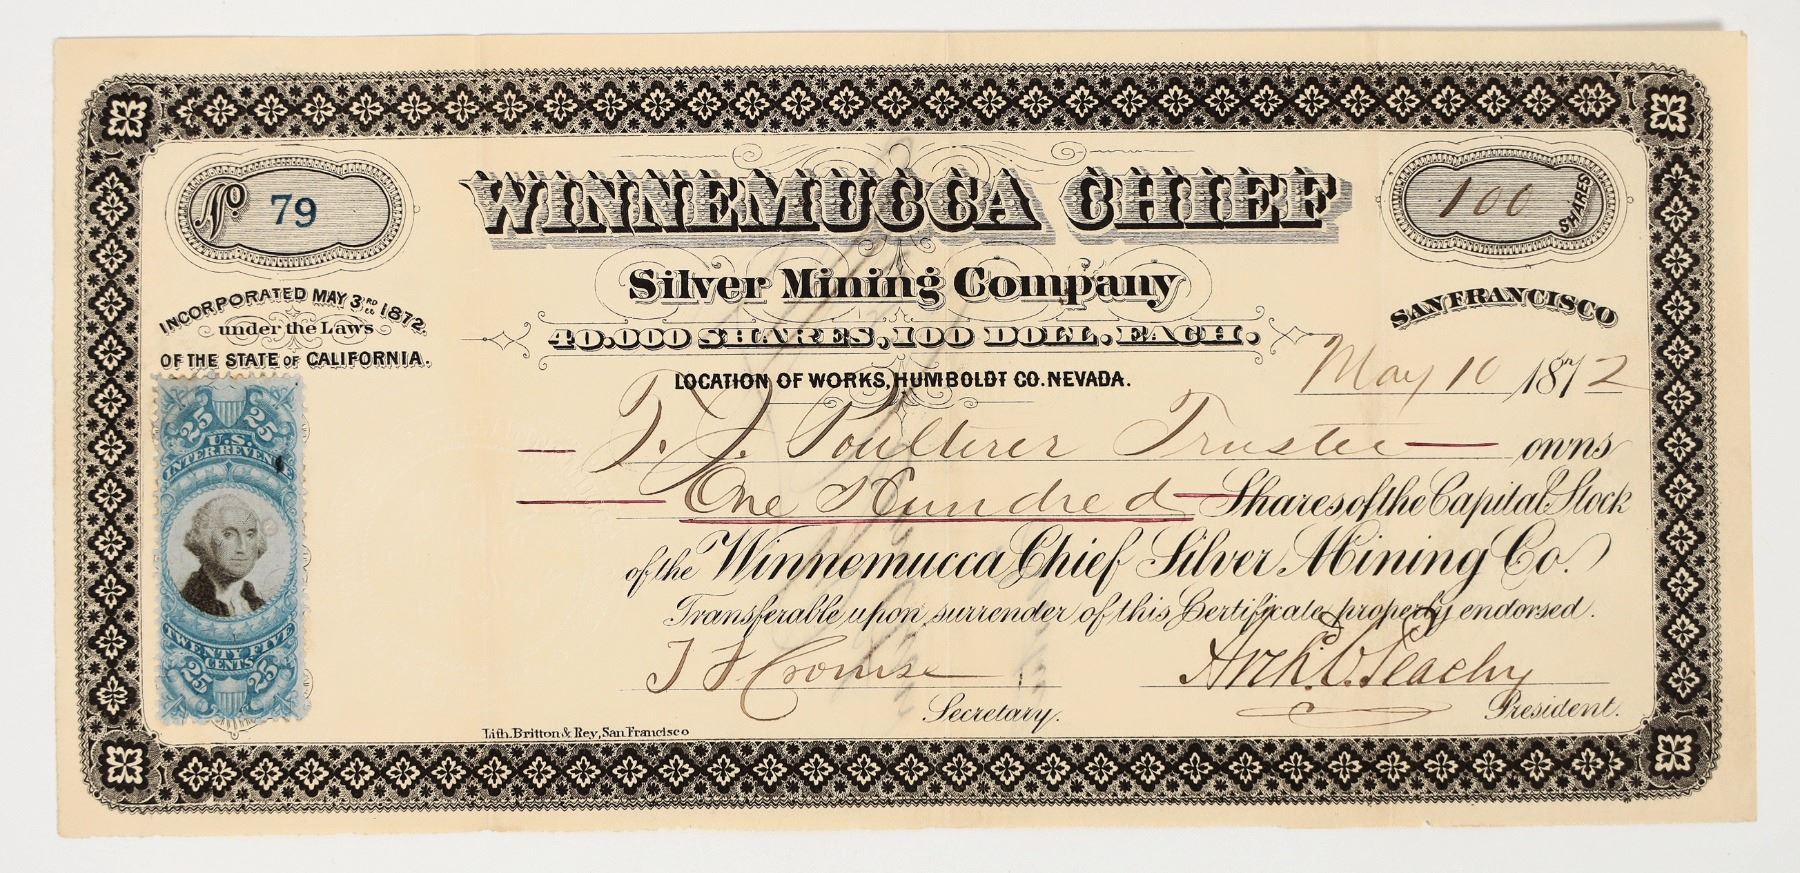 No. 79
WINNEMUCCA CHIEF
100 SHARES
Silver Mining Company
40.000 SHARES, 100 DOLL. EACH.
LOCATION OF WORKS, HUMBOLDT CO. NEVADA.
INCORPORATED MAY 3RD 1872.
under the Laws
OF THE STATE OF CALIFORNIA.
SAN FRANCISCO
May 10 1872
T. J. Poulterer Trustee owns
One Hundred Shares of the Capital Stock
of the Winnemucca Chief Silver Mining Co.
Transferable upon surrender of this Certificate properly endorsed.
Secretary.
President.
Lith. Britton & Rey, San Francisco
25 25
U.S.
INTER. REVENUE
TWENTY FIVE
CENTS
25 25